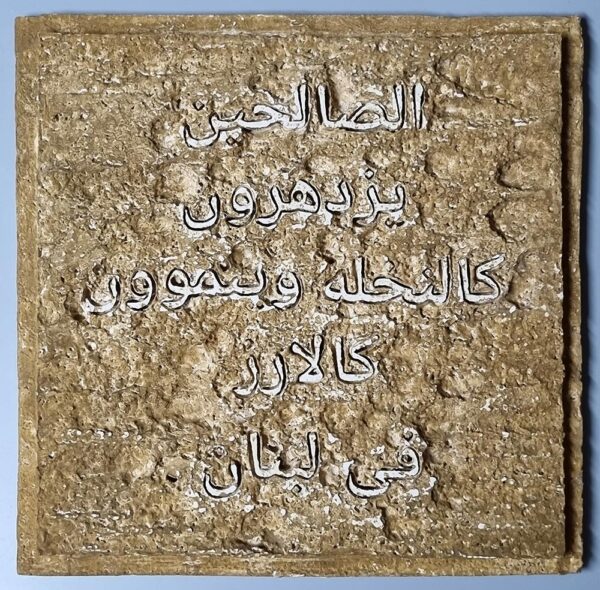 الصالحين
يزدهرون
كالنخله وينموون
كالارز
في لبنان